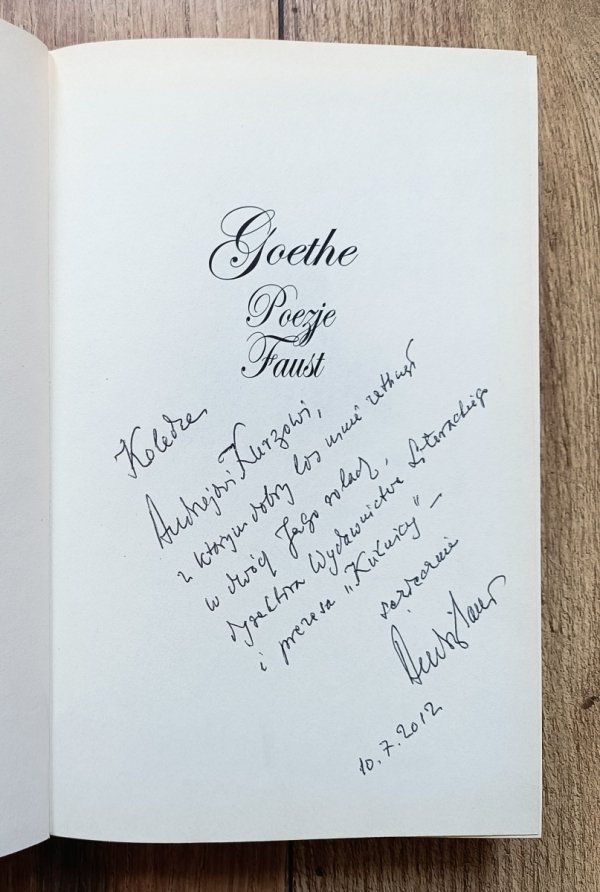 Goethe
Poezje
Faust
Koledze
Andrzejowi Kurzowi,
z którym dobry los mnie zetknął
w dwóch Jego rolach,
dyrektora Wydawnictwa Literackiego
i prezesa „Kuźnicy” –
serdecznie
10.7.2012